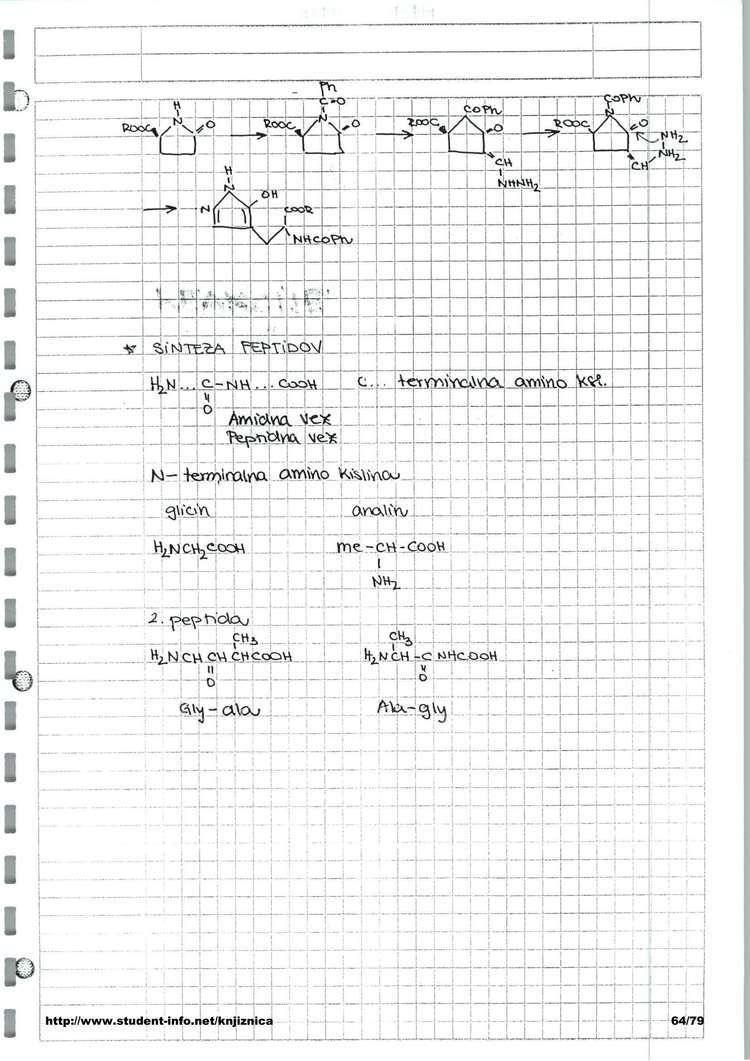 Ph
H C=O COPh COPh
ROOC N O ROOC N O ROOC O ROOC N O NH2
CH CH NH2
NHNH2
H
N OH
N COOR
NHCOPh
* SINTEZA PEPTIDOV
H2N...C-NH...COOH C... terminalna amino ksl.
O
Amidna vez
Peptidna vez
N-terminalna amino kislina
glicin analin
H2NCH2COOH me-CH-COOH
NH2
2. peptida
CH3 CH3
H2NCH CH CHCOOH H2NCH-C NHCOOH
O O
Gly-ala Ala-gly
http://www.student-info.net/knjiznica 64/79